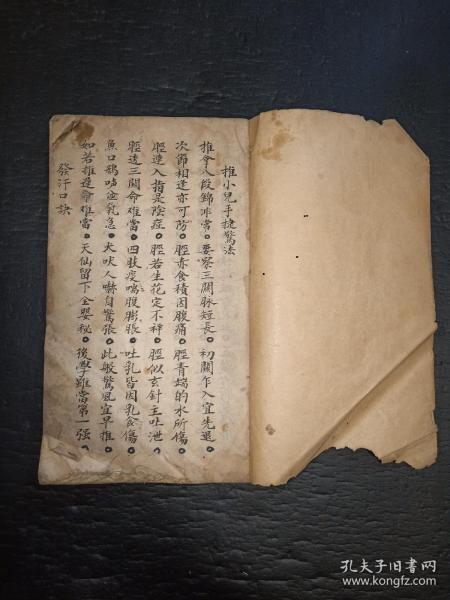 推小兒手捷驚法
推拿八段錦非常。要察三關脉短長。初關乍入宜先退。
次節相逢亦可防。脛赤食積因腹痛。脛青端的水所傷
脛連入指是陰症。脛若生花定不祥。脛似玄針主吐泄
脛透三關命難當。四肢痰喘腹膨脹。吐乳皆因乳食傷
魚口鴉 速乳急。犬吠人嚇自驚張。此般驚風宜早推
如若推遲命难當。天仙留下全嬰秘。後學雖當第一强
發汗口訣
孔夫子旧书网
www.kongfz.com